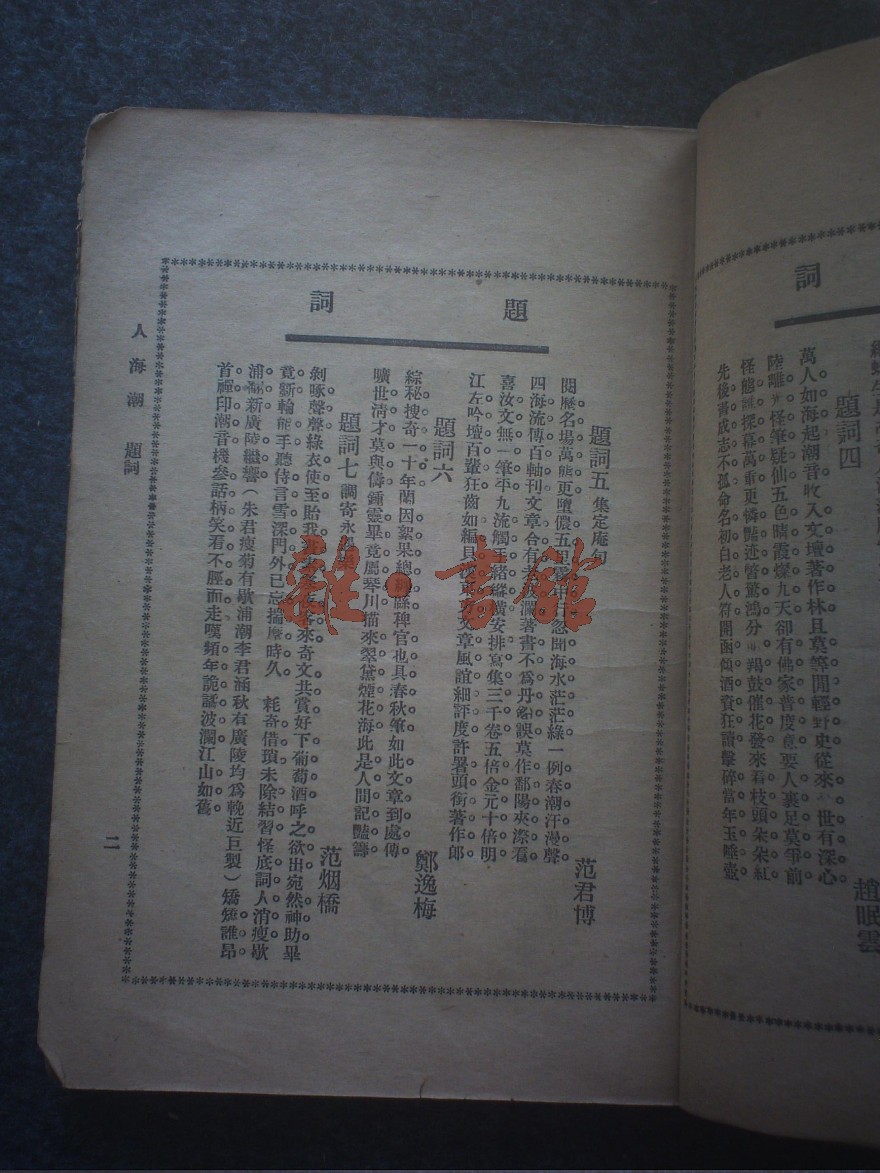 詞
題詞四
趙眠雲
萬人如海起潮音收入文壇著作林且莫等閒輕野史從來 世有深心
陸離 怪筆疑仙五色晴霞燦九天卻有佛家普度意要人裹足莫爭前
怪態 探幕萬重更憐豔迹瞥驚鴻分 羯鼓催花發來看枝頭朵朵紅
先後書成志不孤命名初白老人符開函傾酒資狂讀擊碎當年玉唾壺
題詞
題詞五 集定庵句
范君博
閱歷名場萬態更墮儂五里 中行忽聞海水茫茫綠一例春潮汗漫聲
四海流傳百軸刊文章合有老波瀾著書不爲丹鉛誤莫作鄱陽夾漈看
喜汝文無一筆平九流觸手緒縱橫安排寫集三千卷五倍金元十倍明
江左吟壇百輩狂齒如編貝 東方文章風誼細評度許署頭銜著作郎
題詞六
鄭逸梅
綜秘搜奇一十年蘭因絮果總纏綿稗官也具春秋筆如此文章到處傳
曠世淸才莫與儔鍾靈畢竟屬琴川猫來翠黛煙花海此是人間記豔籌
題詞七 調寄永 樂
范烟橋
剝啄聲聲綠衣使至貽我 來奇文共賞好下葡萄酒呼之欲出宛然神助畢
竟斲輪能手聽侍言雪深門外已忘揣摩時久 耗奇借瑣未除結習怪底詞人消瘦歇
浦潮新廣陵繼響(朱君瘦菊有歇浦潮李君涵秋有廣陵均爲輓近巨製)矯矯誰昂
首禪印潮音機參話柄笑看不脛而走嘆頻年詭譎波瀾江山如舊
人海潮 題詞
二
雜·書館